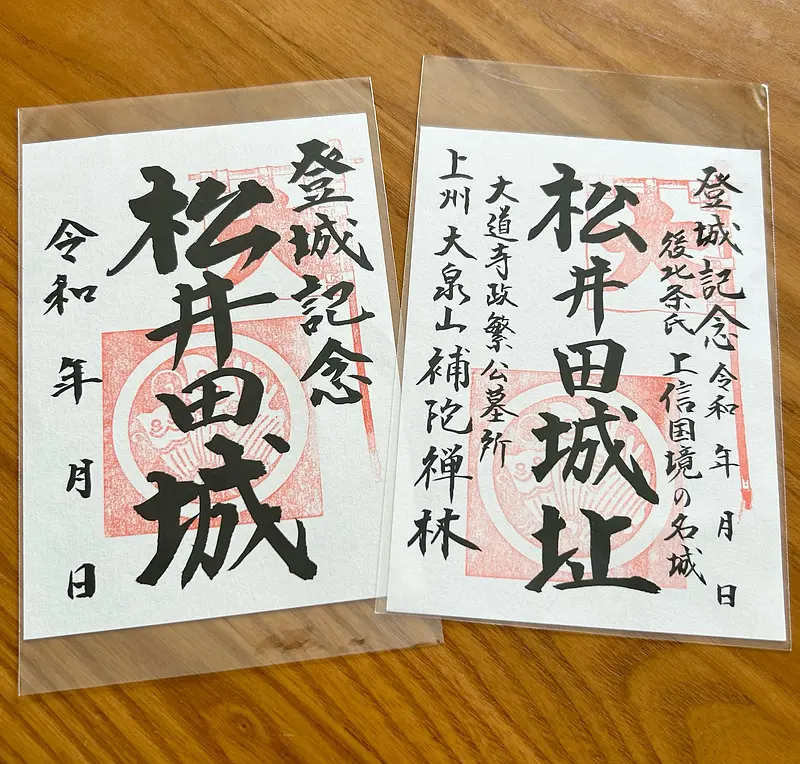 登城記念
松井田城
令和 年 月 日
登城記念 令和 年 月 日
後北条氏 上信国境の名城
松井田城址
大道寺政繁公墓所
上州 大泉山 補陀禅林